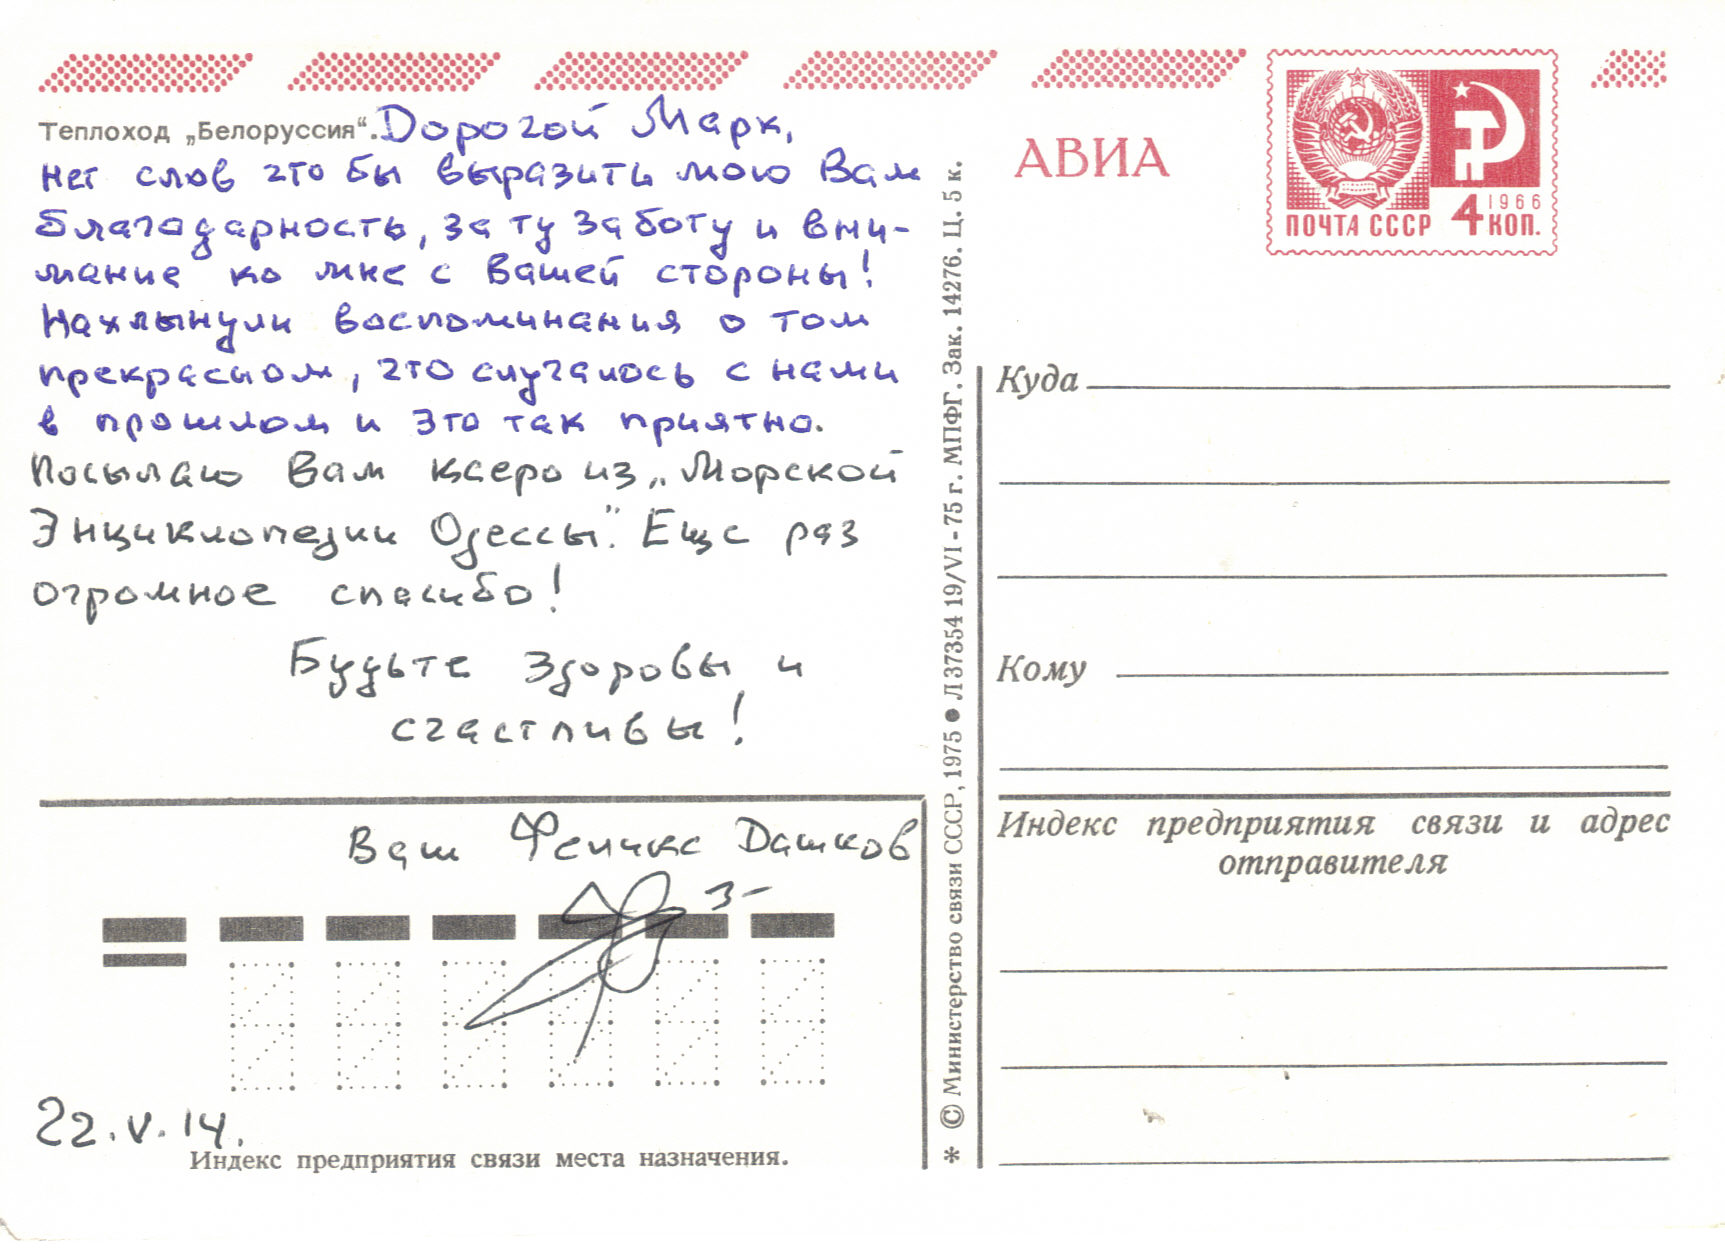 Теплоход „Белоруссия“. Дорогой Марк,
нет слов что бы выразить мою Вам
благодарность, за ту заботу и вни-
мание ко мне с Вашей стороны!
Нахлынули воспоминания о том
прекрасном, что случалось с нами
в прошлом и это так приятно.
Посылаю Вам ксеро из „Морской
Энциклопедии Одессы". Еще раз
огромное спасибо!
Будьте здоровы и
счастливы!
Ваш Феликс Дашков
22.V.14.
Индекс предприятия связи места назначения.
* © Министерство связи СССР, 1975 ● Л 37354 19/VI-75 г. МПФГ. Зак. 14276. Ц. 5 к.
АВИА
ПОЧТА СССР
1966
4 КОП.
Куда
Кому
Индекс предприятия связи и адрес
отправителя